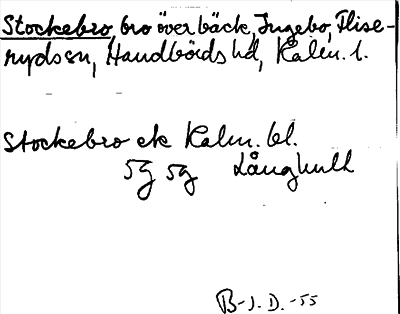 Stockebro, bro över bäck, Ingebo, Flise-
rydssn, Handbörds hd, Kalm. l.
Stockebro ek Kalm. bl.
5g 5g Långhult
B-J.D.-55